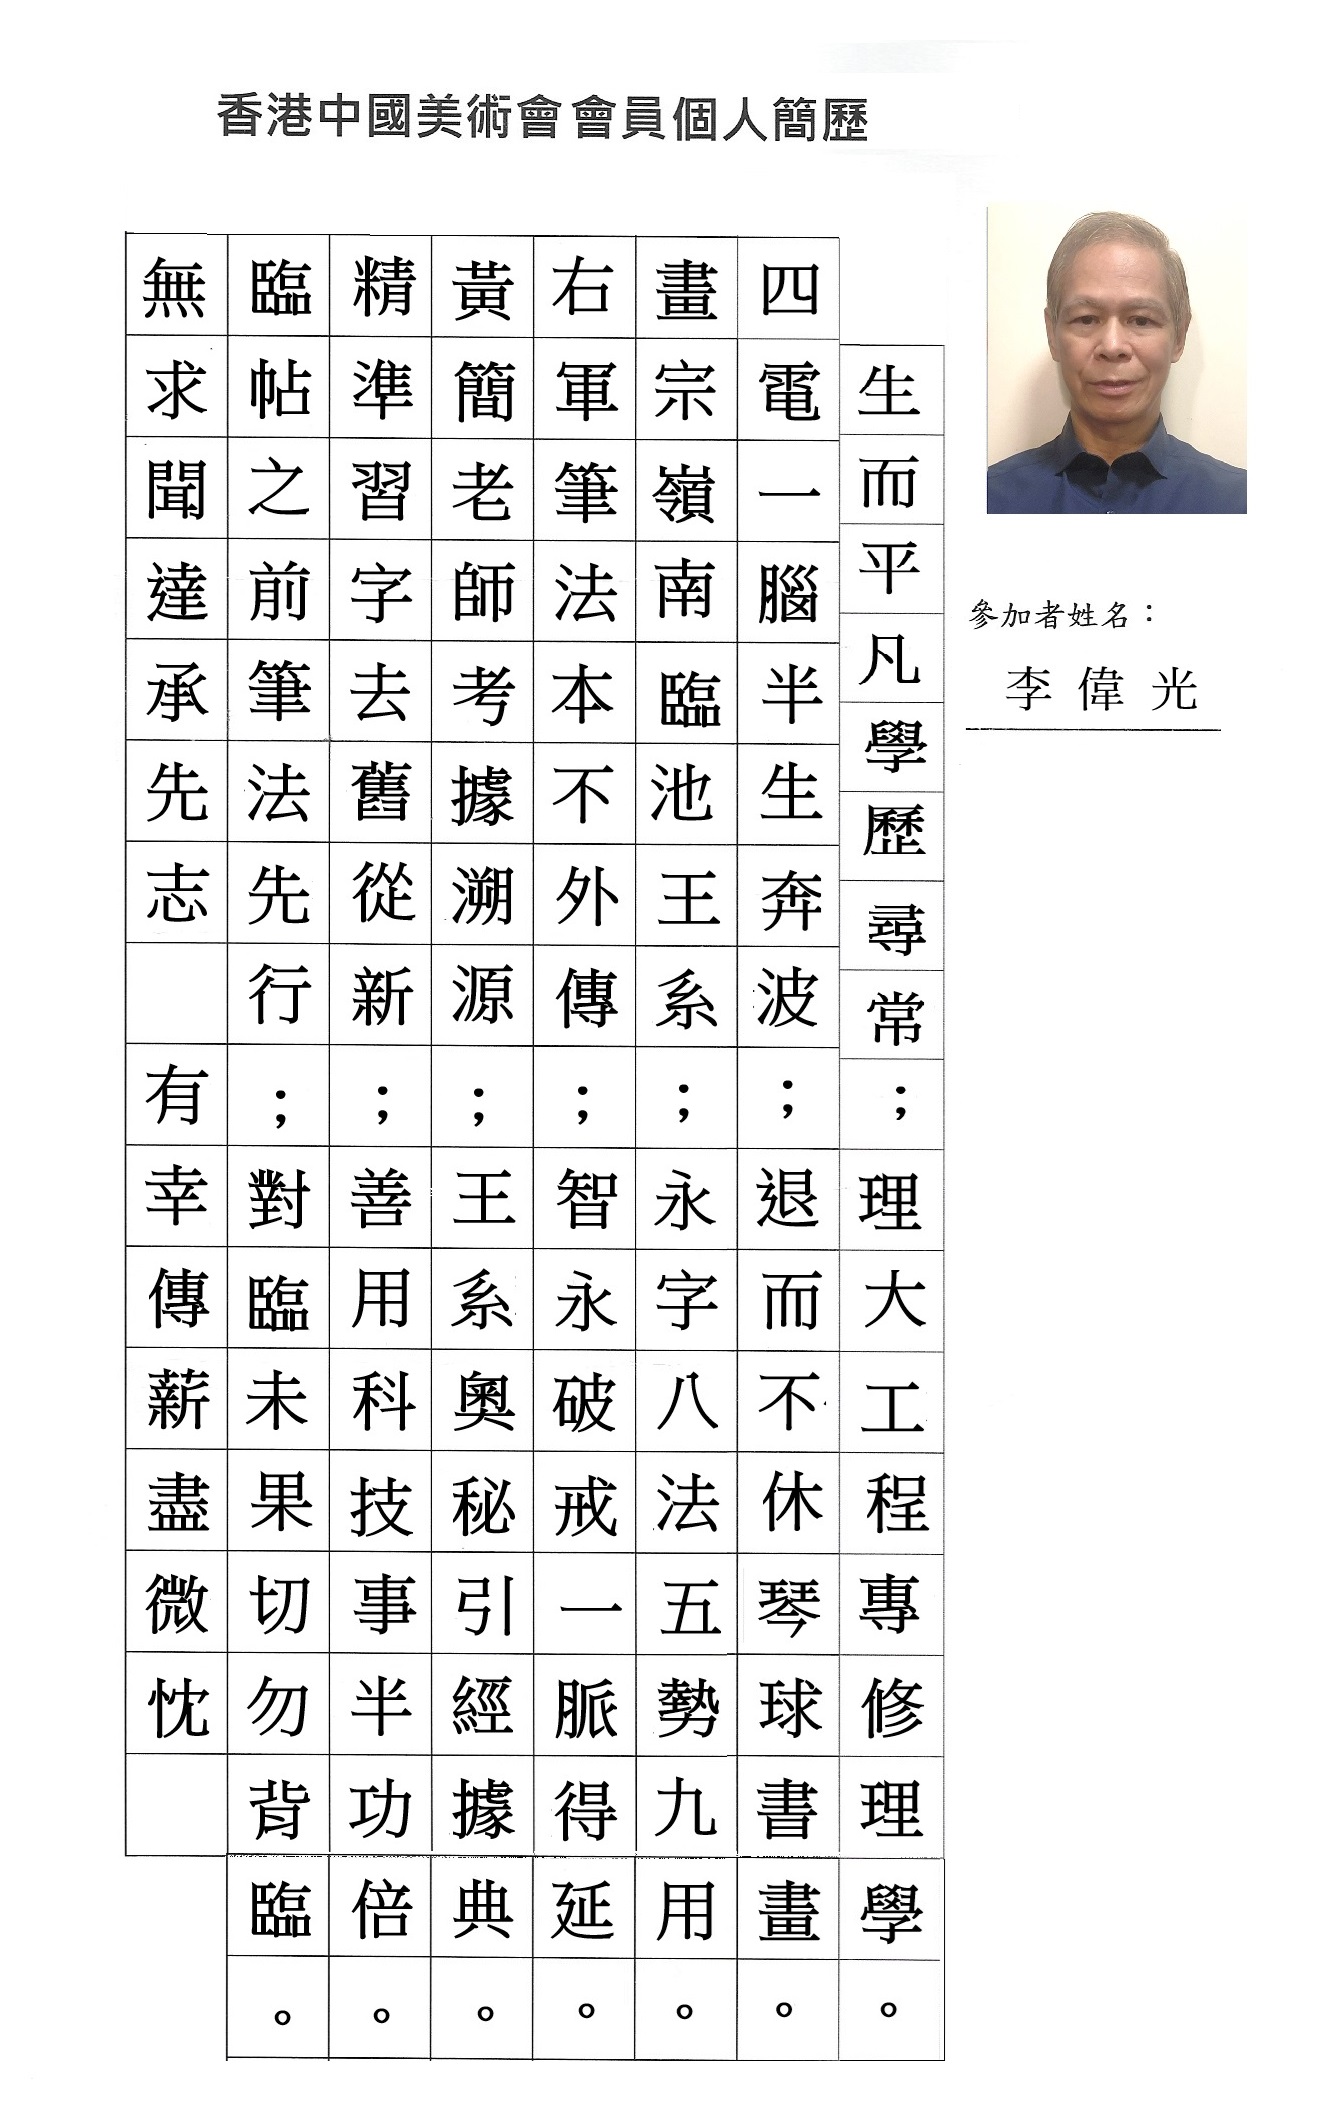 香港中國美術會會員個人簡歷
參加者姓名：
李偉光
生而平凡學歷尋常；理大工程專修理學。
四電一腦半生奔波；退而不休琴球書畫。
畫宗嶺南臨池王系；永字八法五勢九用。
右軍筆法本不外傳；智永破戒一脈得延。
黃簡老師考據溯源；王系奧秘引經據典。
精準習字去舊從新；善用科技事半功倍。
臨帖之前筆法先行；對臨未果切勿背臨。
無求聞達承先志　有幸傳薪盡微忱